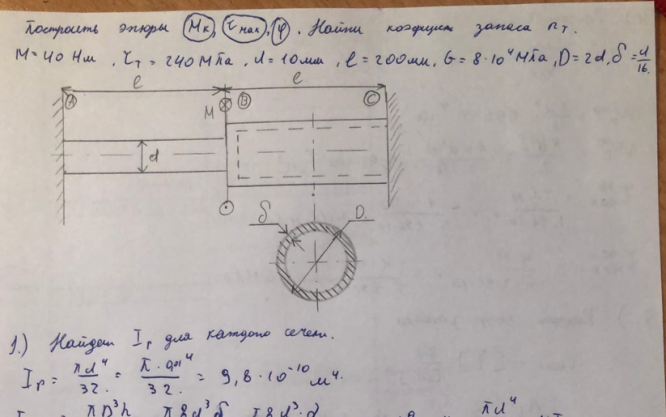 Построить эпюры Mк, τmax, φ. Найти коэфициент запаса nт.
M=40 Нм, τт = 240 МПа, d=10мм, ℓ=200мм, G=8·10⁴ МПа, D=2d, δ=d/16.
ℓ ℓ
A M B C
d
δ D
1.) Найдем Iр для каждого сечени.
Iр = πd⁴/32 = π·0,01⁴/32 = 9,8·10⁻¹⁰ м⁴.
πD³h π8d³δ πd⁴